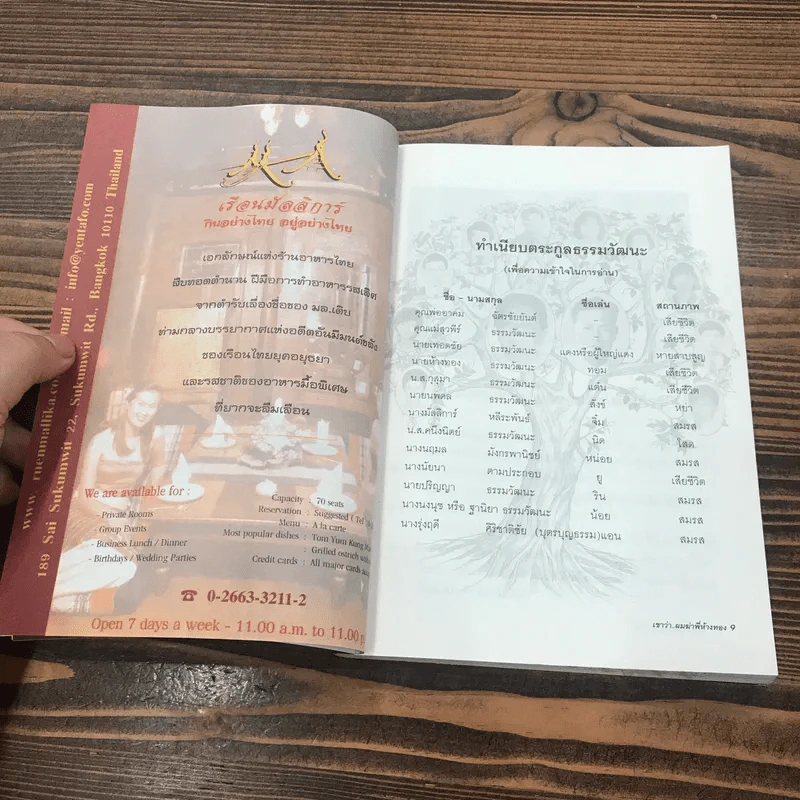 เรือนมัลลิการ์
กินอย่างไทย อยู่อย่างไทย
เอกลักษณ์แห่งร้านอาหารไทย
สืบทอดตำนาน ฝีมือการทำอาหารรสเลิศ
จากตำรับเลื่องชื่อของ มล.เติบ
ท่ามกลางบรรยากาศแห่งอดีตอันมีมนต์ขลัง
ของเรือนไทยยุคอยุธยา
และรสชาติของอาหารมื้อพิเศษ
ที่ยากจะลืมเลือน
We are available for :
- Private Rooms
- Group Events
- Business Lunch / Dinner
- Birthdays / Wedding Parties
Capacity : 70 seats
Reservation : Suggested ( Tel
Menu : A la carte
Most popular dishes : Tom Yum Kung
: Grilled ostrich
Credit cards : All major cards
☎ 0-2663-3211-2
Open 7 days a week - 11.00 a.m. to 11.00
www. ruenmallika.co
mail : info@yentafo.com
189 Sai Sukumwit 22, Sukumwit Rd., Bangkok 10110 Thailand
ทำเนียบตระกูลธรรมวัฒนะ
(เพื่อความเข้าใจในการอ่าน)
ชื่อ - นามสกุล ชื่อเล่น สถานภาพ
คุณพ่ออาคม ฉัตรชัยยันต์ – เสียชีวิต
คุณแม่สุวพีร์ ธรรมวัฒนะ – เสียชีวิต
นายเทอดชัย ธรรมวัฒนะ แดงหรือผู้ใหญ่แดง หายสาบสูญ
นายห้างทอง ธรรมวัฒนะ ทอม เสียชีวิต
น.ส.กุสุมา ธรรมวัฒนะ แต๋น เสียชีวิต
นายนพดล ธรรมวัฒนะ สังข์ หย่า
นางมัลลิการ์ หลีระพันธ์ จิ๋ม สมรส
น.ส.คนึงนิตย์ ธรรมวัฒนะ นิด โสด
นางนฤมล มังกรพานิชย์ หน่อย สมรส
นางนัยนา ตามประกอบ ยู เสียชีวิต
นายปริญญา ธรรมวัฒนะ ริน สมรส
นางนงนุช หรือ ฐานิยา ธรรมวัฒนะ น้อย สมรส
นางรุ่งฤดี ศิริชาติชัย (บุตรบุญธรรม) แอน สมรส
เขาว่า..ผมฆ่าพี่ห้างทอง 9